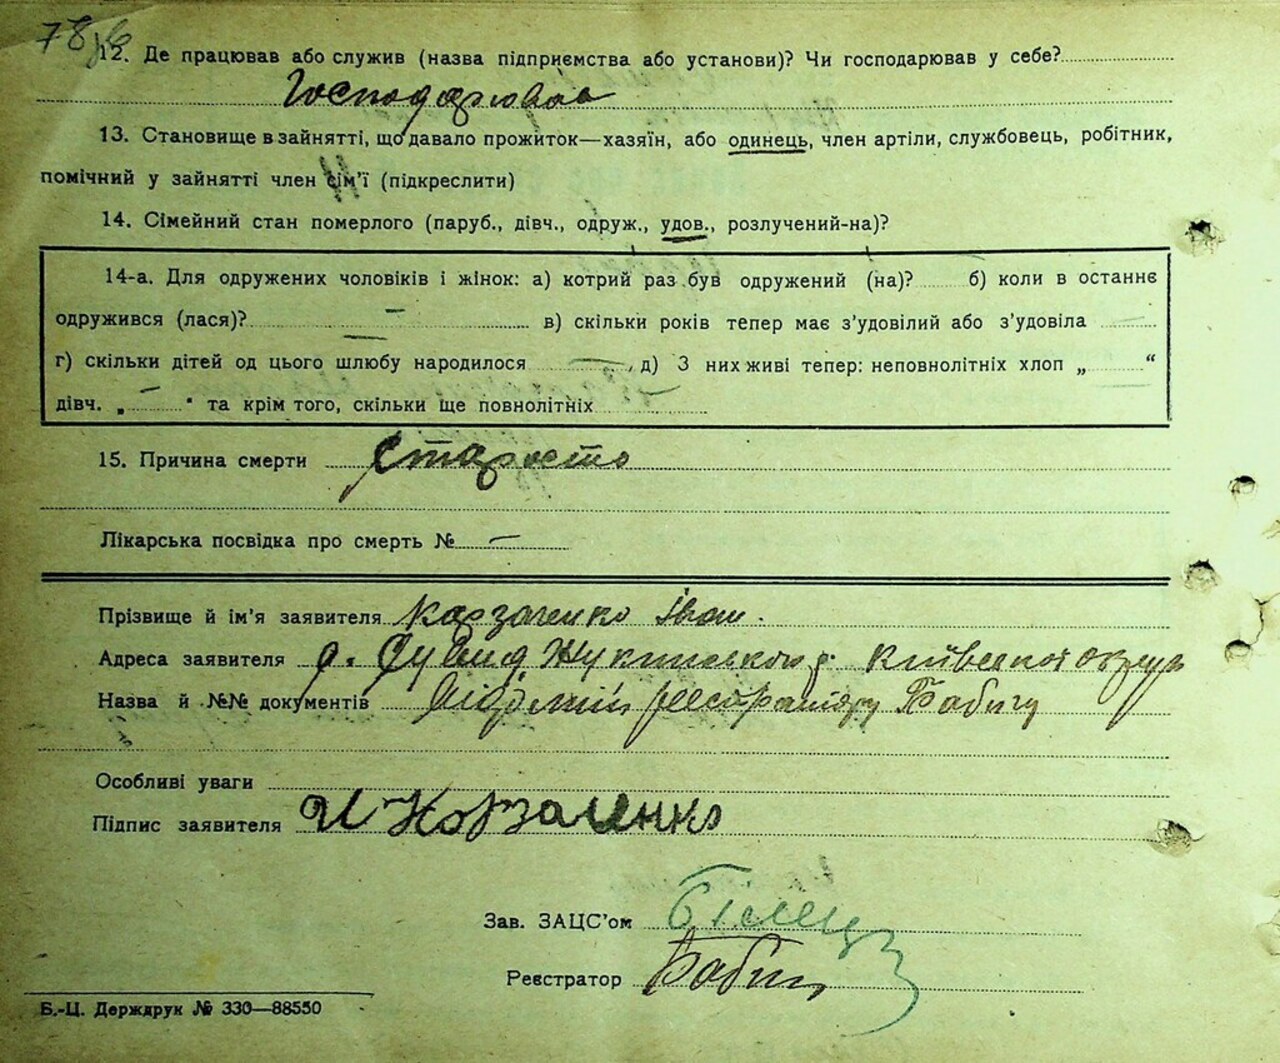 78
12. Де працював або служив (назва підприємства або установи)? Чи господарював у себе?
Господарював
13. Становище в зайнятті, що давало прожиток—хазяїн, або одинець, член артілі, службовець, робітник,
помічний у зайнятті член сім'ї (підкреслити)
14. Сімейний стан померлого (паруб., дівч., одруж., удов., розлучений-на)?
14-а. Для одружених чоловіків і жінок: а) котрий раз був одружений (на)? б) коли в останнє
одружився (лася)? — в) скільки років тепер має з'удовілий або з'удовіла —
г) скільки дітей од цього шлюбу народилося —, д) З них живі тепер: неповнолітніх хлоп „ — “
дівч. „ — " та крім того, скільки ще повнолітніх —
15. Причина смерти Старость
Лікарська посвідка про смерть № —
Прізвище й ім'я заявителя Карзаченко Іван.
Адреса заявителя с. Сувид Жукинського р. Київської округи
Назва й №№ документів Відомий реєстратору Бабичу
Особливі уваги
Підпис заявителя И Корзаченко
Зав. ЗАЦС'ом
Реєстратор Бабич
Б.-Ц. Держдрук № 330—88550